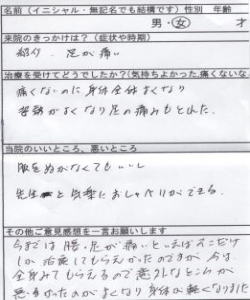 名前（イニシャル・無記名でも結構です）性別　年齢
男・女　才
来院のきっかけは？（症状や時期）
紹介．足が痛い
治療を受けてどうでしたか？（気持ちよかった、痛くないな
痛くないのに身体全体がよくなり
姿勢がよくなり足の痛みもとれた。
当院のいいところ、悪いところ
服をぬがなくてもいいし
先生と気楽におしゃべりができる。
その他ご意見感想を一言お願いします
今までは腰・足が痛いといえばそこだけ
しか治療してもらえなかったのですが、今は、
全身みてもらえるので意外なところが
悪かったのがよくなり身体が軽くなりました